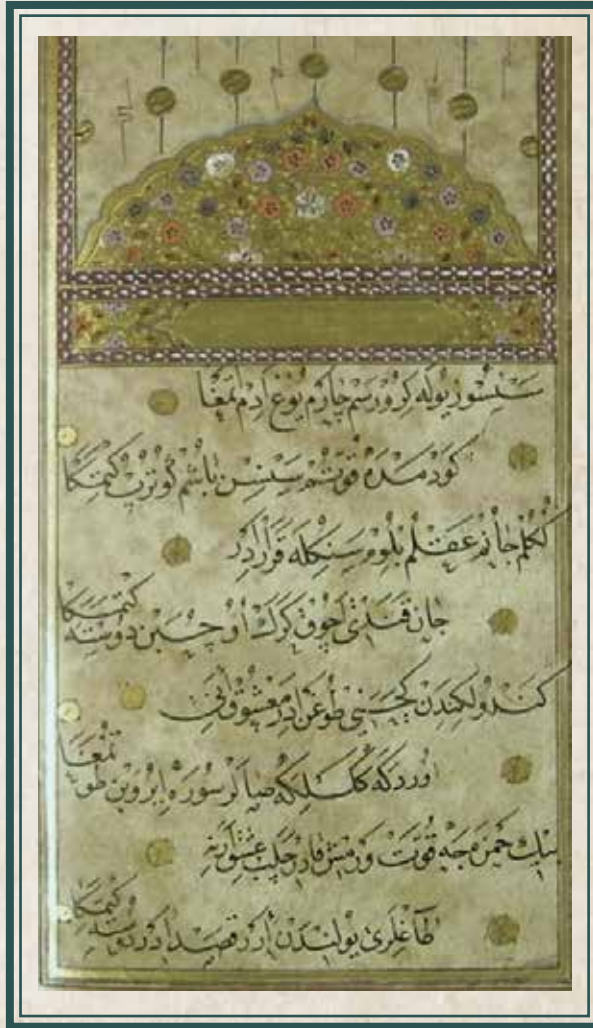 سَنْسُوزْ يُولَه كِرُورْسَمْ چَارَمْ يُوغْ اَدِمْ اَتْمَغَا
كَوْدَمْدَه قُوَّتُمْ سَنْسِنْ بَاشُمْ كُوتُرُبْ كِتْمَكَا
كُكُلُمْ جَانُمْ عَقْلُمْ بِلُومْ سَنِكْلَه قَرَارْ ادَرْ
جَانْ قَنَدِى اَچُوقْ كَرَكْ اُوچُبَنْ دُوسْتَه كِتْمَكَا
كَنْدُولِكِنْدَنْ كَچَنِى طُوغَنْ ادَرْ مَعْشُوقْ اَنِى
اُورْدَكَه كَكْلِكَه صَالَرْ سُورَه اِيرُوبَنْ طُوتْمَغَا
بِيكْ حَمْزَه جَه قُوَّتْ وَرْمِشْ قَادِرْ چَلَبْ عِشْقْ اَرِنَه
طَاغْلَرِى يُولِنْدَنْ اِرَرْ قَصْدْ ادَرْ دُوسْتَه كِتْمَكَا